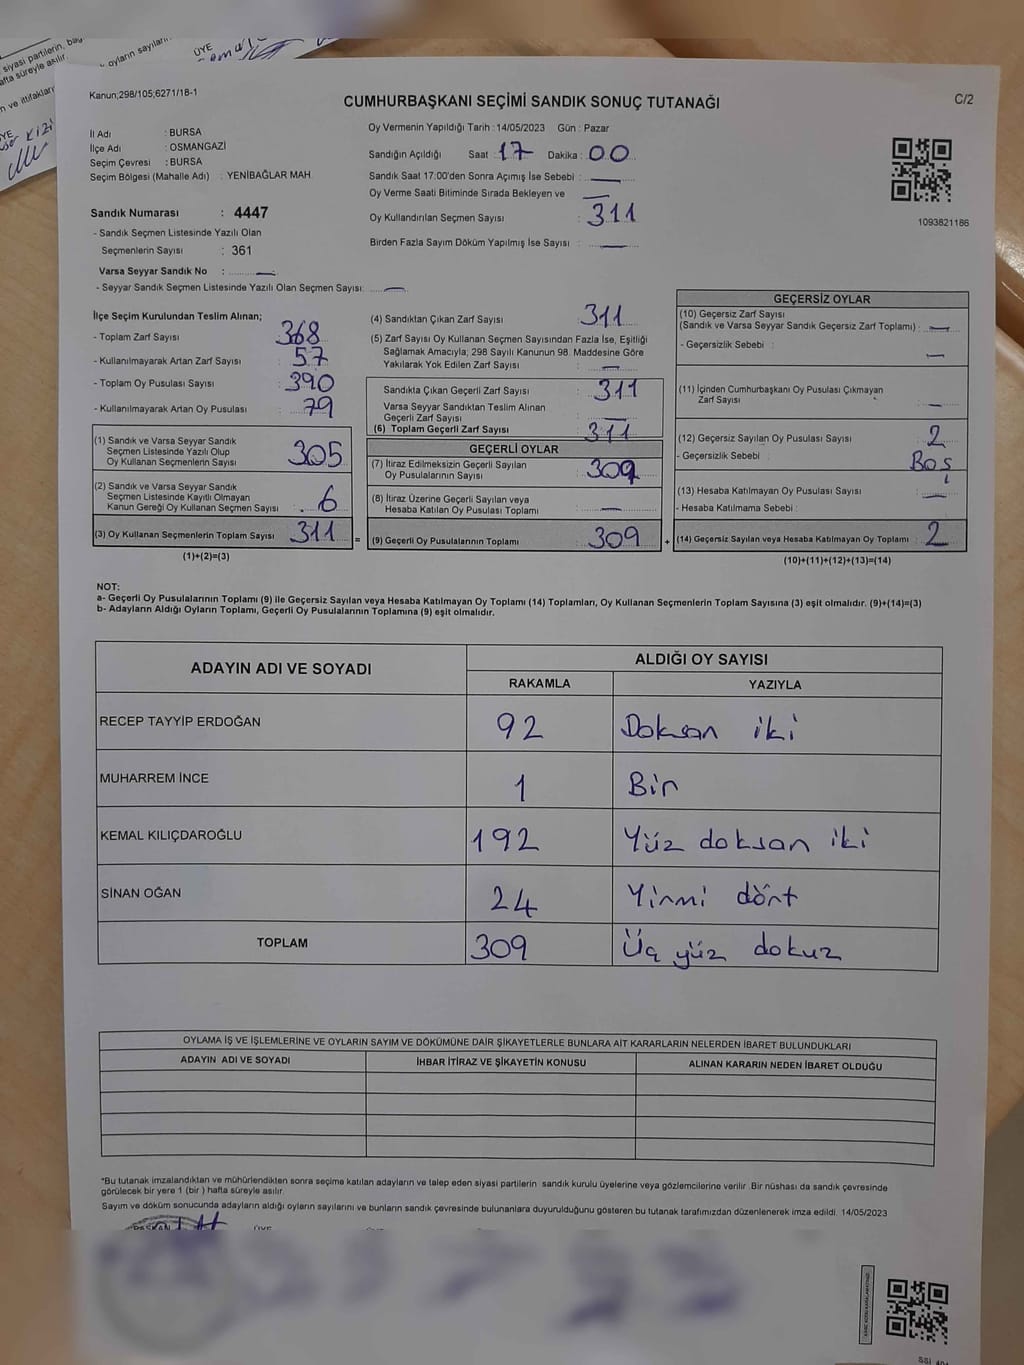 siyasi partilerin, bağ
afta süreyle asılır.
oyların sayıları
ÜYE
n ve ittifakları
KIZI
Kanun;298/105;6271/18-1
CUMHURBAŞKANI SEÇİMİ SANDIK SONUÇ TUTANAĞI
C/2
İl Adı : BURSA
İlçe Adı : OSMANGAZİ
Seçim Çevresi : BURSA
Seçim Bölgesi (Mahalle Adı) : YENİBAĞLAR MAH.
Sandık Numarası : 4447
- Sandık Seçmen Listesinde Yazılı Olan
Seçmenlerin Sayısı : 361
Varsa Seyyar Sandık No : —
- Seyyar Sandık Seçmen Listesinde Yazılı Olan Seçmen Sayısı: —
Oy Vermenin Yapıldığı Tarih : 14/05/2023 Gün : Pazar
Sandığın Açıldığı Saat : 17 Dakika : 00
Sandık Saat 17:00'den Sonra Açımış İse Sebebi : —
Oy Verme Saati Bitiminde Sırada Bekleyen ve —
Oy Kullandırılan Seçmen Sayısı : 311
Birden Fazla Sayım Döküm Yapılmış İse Sayısı : —
1093821186
İlçe Seçim Kurulundan Teslim Alınan;
- Toplam Zarf Sayısı : 368
- Kullanılmayarak Artan Zarf Sayısı : 57
- Toplam Oy Pusulası Sayısı : 390
- Kullanılmayarak Artan Oy Pusulası : 79
(1) Sandık ve Varsa Seyyar Sandık
Seçmen Listesinde Yazılı Olup
Oy Kullanan Seçmenlerin Sayısı : 305
(2) Sandık ve Varsa Seyyar Sandık
Seçmen Listesinde Kayıtlı Olmayan
Kanun Gereği Oy Kullanan Seçmen Sayısı : 6
(3) Oy Kullanan Seçmenlerin Toplam Sayısı : 311
(1)+(2)=(3)
=
(4) Sandıktan Çıkan Zarf Sayısı : 311
(5) Zarf Sayısı Oy Kullanan Seçmen Sayısından Fazla İse, Eşitliği
Sağlamak Amacıyla, 298 Sayılı Kanunun 98. Maddesine Göre
Yakılarak Yok Edilen Zarf Sayısı : —
Sandıkta Çıkan Geçerli Zarf Sayısı : 311
Varsa Seyyar Sandıktan Teslim Alınan
Geçerli Zarf Sayısı : —
(6) Toplam Geçerli Zarf Sayısı : 311
GEÇERLİ OYLAR
(7) İtiraz Edilmeksizin Geçerli Sayılan
Oy Pusulalarının Sayısı : 309
(8) İtiraz Üzerine Geçerli Sayılan veya
Hesaba Katılan Oy Pusulası Toplamı : —
(9) Geçerli Oy Pusulalarının Toplamı : 309
+
GEÇERSİZ OYLAR
(10) Geçersiz Zarf Sayısı
(Sandık ve Varsa Seyyar Sandık Geçersiz Zarf Toplamı) : —
- Geçersizlik Sebebi : —
(11) İçinden Cumhurbaşkanı Oy Pusulası Çıkmayan
Zarf Sayısı : —
(12) Geçersiz Sayılan Oy Pusulası Sayısı : 2
- Geçersizlik Sebebi : Boş
(13) Hesaba Katılmayan Oy Pusulası Sayısı : —
- Hesaba Katılmama Sebebi :
(14) Geçersiz Sayılan veya Hesaba Katılmayan Oy Toplamı : 2
(10)+(11)+(12)+(13)=(14)
NOT:
a- Geçerli Oy Pusulalarının Toplamı (9) ile Geçersiz Sayılan veya Hesaba Katılmayan Oy Toplamı (14) Toplamları, Oy Kullanan Seçmenlerin Toplam Sayısına (3) eşit olmalıdır. (9)+(14)=(3)
b- Adayların Aldığı Oyların Toplamı, Geçerli Oy Pusulalarının Toplamına (9) eşit olmalıdır.
ADAYIN ADI VE SOYADI ALDIĞI OY SAYISI
RAKAMLA YAZIYLA
RECEP TAYYİP ERDOĞAN 92 Doksan iki
MUHARREM İNCE 1 Bir
KEMAL KILIÇDAROĞLU 192 Yüz doksan iki
SİNAN OĞAN 24 Yirmi dört
TOPLAM 309 Üç yüz dokuz
OYLAMA İŞ VE İŞLEMLERİNE VE OYLARIN SAYIM VE DÖKÜMÜNE DAİR ŞİKAYETLERLE BUNLARA AİT KARARLARIN NELERDEN İBARET BULUNDUKLARI
ADAYIN ADI VE SOYADI İHBAR İTİRAZ VE ŞİKAYETİN KONUSU ALINAN KARARIN NEDEN İBARET OLDUĞU
*Bu tutanak imzalandıktan ve mühürlendikten sonra seçime katılan adayların ve talep eden siyasi partilerin sandık kurulu üyelerine veya gözlemcilerine verilir .Bir nüshası da sandık çevresinde
görülecek bir yere 1 (bir ) hafta süreyle asılır.
Sayım ve döküm sonucunda adayların aldığı oyların sayılarını ve bunların sandık çevresinde bulunanlara duyurulduğunu gösteren bu tutanak tarafımızdan düzenlenerek imza edildi. 14/05/2023
BAŞKAN ÜYE